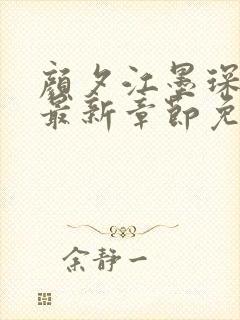 顔夕江墨琛
最新章節免
余静一